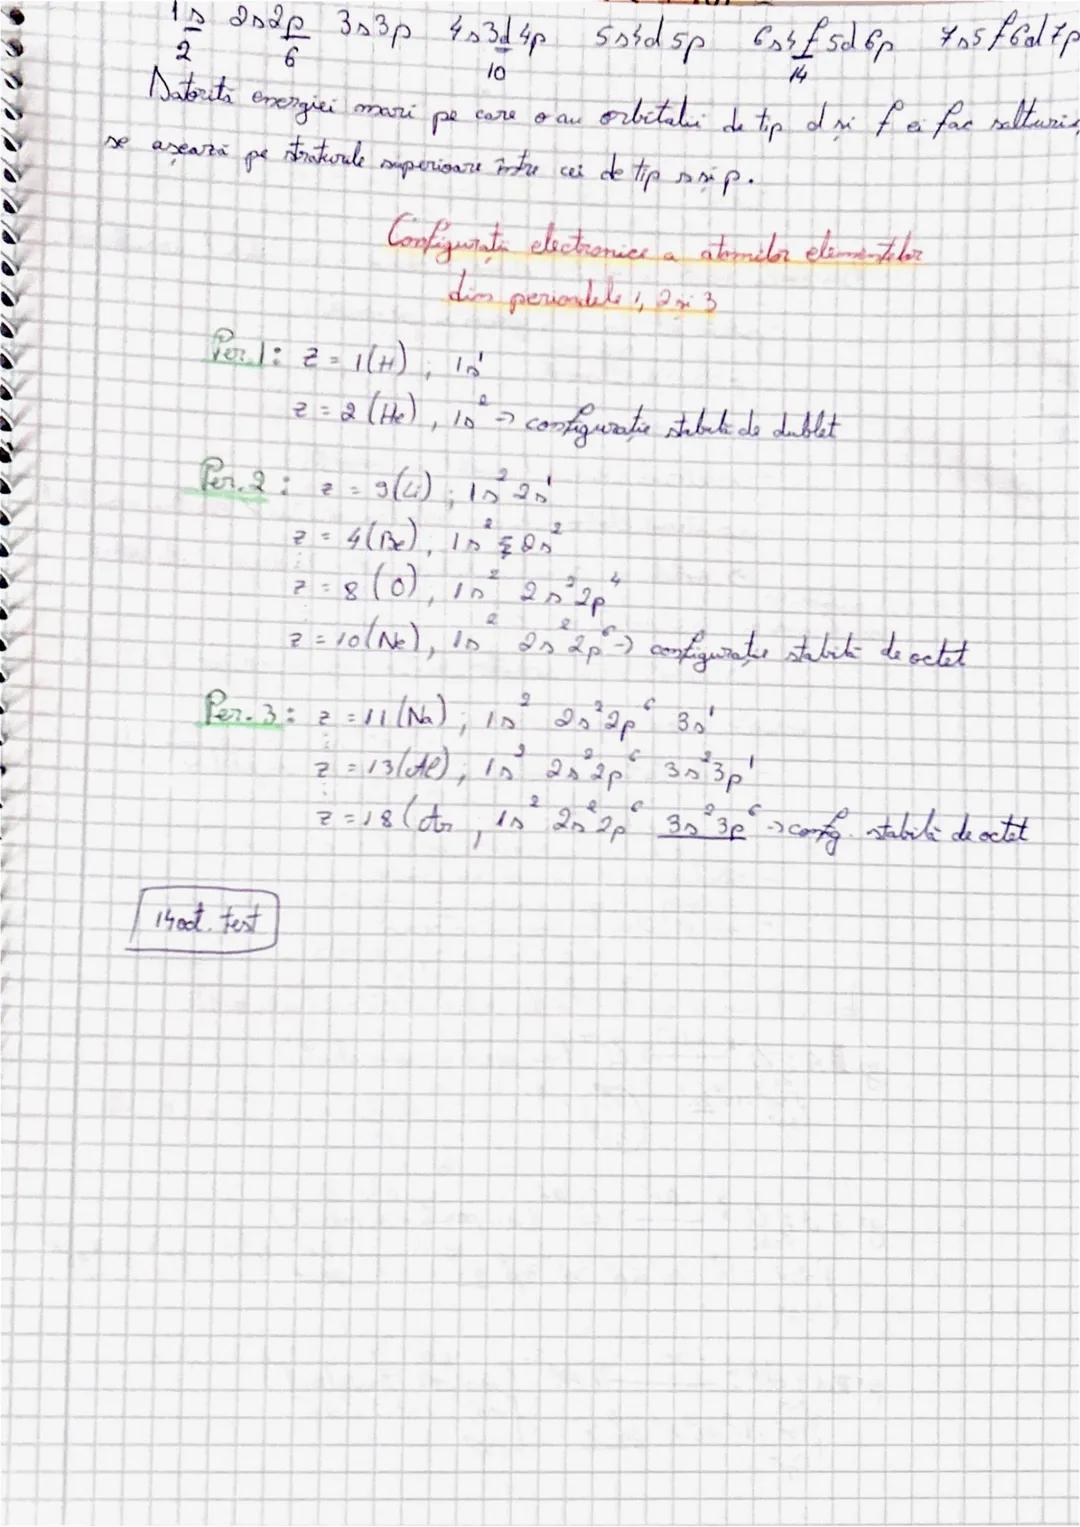 1s 2s2p 3s3p 4s3d4p 5s4d5p 6s4f5d6p 7s5f6d7p
2 6 10 14
Datorită energiei mari pe care o au orbitalii de tip d și f ei fac salturi și
se așează pe straturile superioare între cei de tip s și p.
Configurații electronice a atomilor elementelor
din perioadele 1, 2 și 3
Per. 1: z = 1(H), 1s¹
z = 2 (He), 1s² → configurație stabilă de dublet
Per. 2: z = 3(Li), 1s² 2s¹
z = 4(Be), 1s² 2s²
z = 8 (O), 1s² 2s²2p⁴
z = 10(Ne), 1s² 2s²2p⁶ → configurație stabilă de octet
Per. 3: z = 11(Na), 1s² 2s²2p⁶ 3s¹
z = 13(Al), 1s² 2s²2p⁶ 3s²3p¹
z = 18(Ar, 1s² 2s²2p⁶ 3s²3p⁶ → config. stabilă de octet
14 oct. test